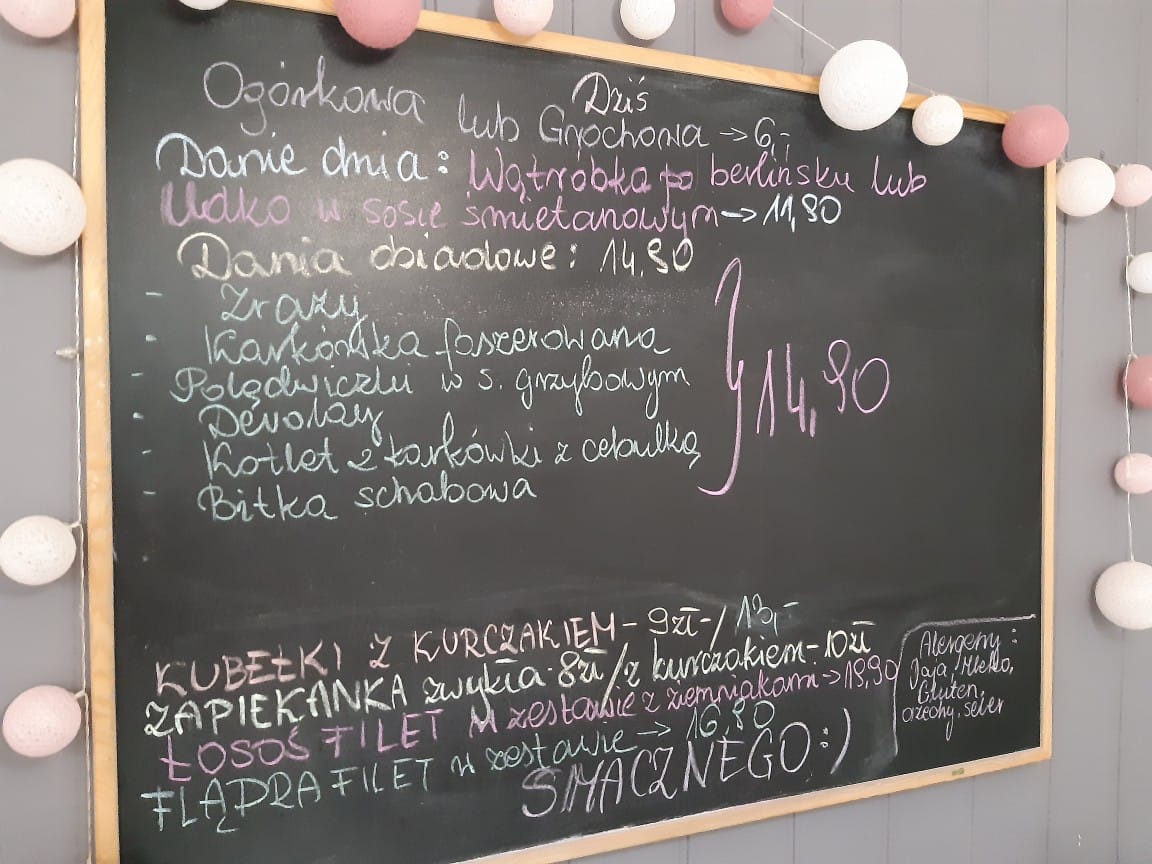 Dziś
Ogórkowa lub Grochowa → 6,-
Danie dnia: Wątróbka po berlińsku lub
Udko w sosie śmietanowym → 11,90
Dania obiadowe: 14,90
- Zrazy
- Karkówka faszerowana
- Polędwiczki w s. grzybowym
- Devolay
- Kotlet z karkówki z cebulką
- Bitka schabowa
-
} 14,90
KUBEŁKI Z KURCZAKIEM - 9zł-/13,-
ZAPIEKANKA zwykła - 8zł/z kurczakiem - 10zł
ŁOSOŚ FILET w zestawie z ziemniakami → 19,90
FLĄDRA FILET w zestawie → 16,90
SMACZNEGO :)
Alergeny:
Jaja, Mleko,
Gluten,
orzechy, seler